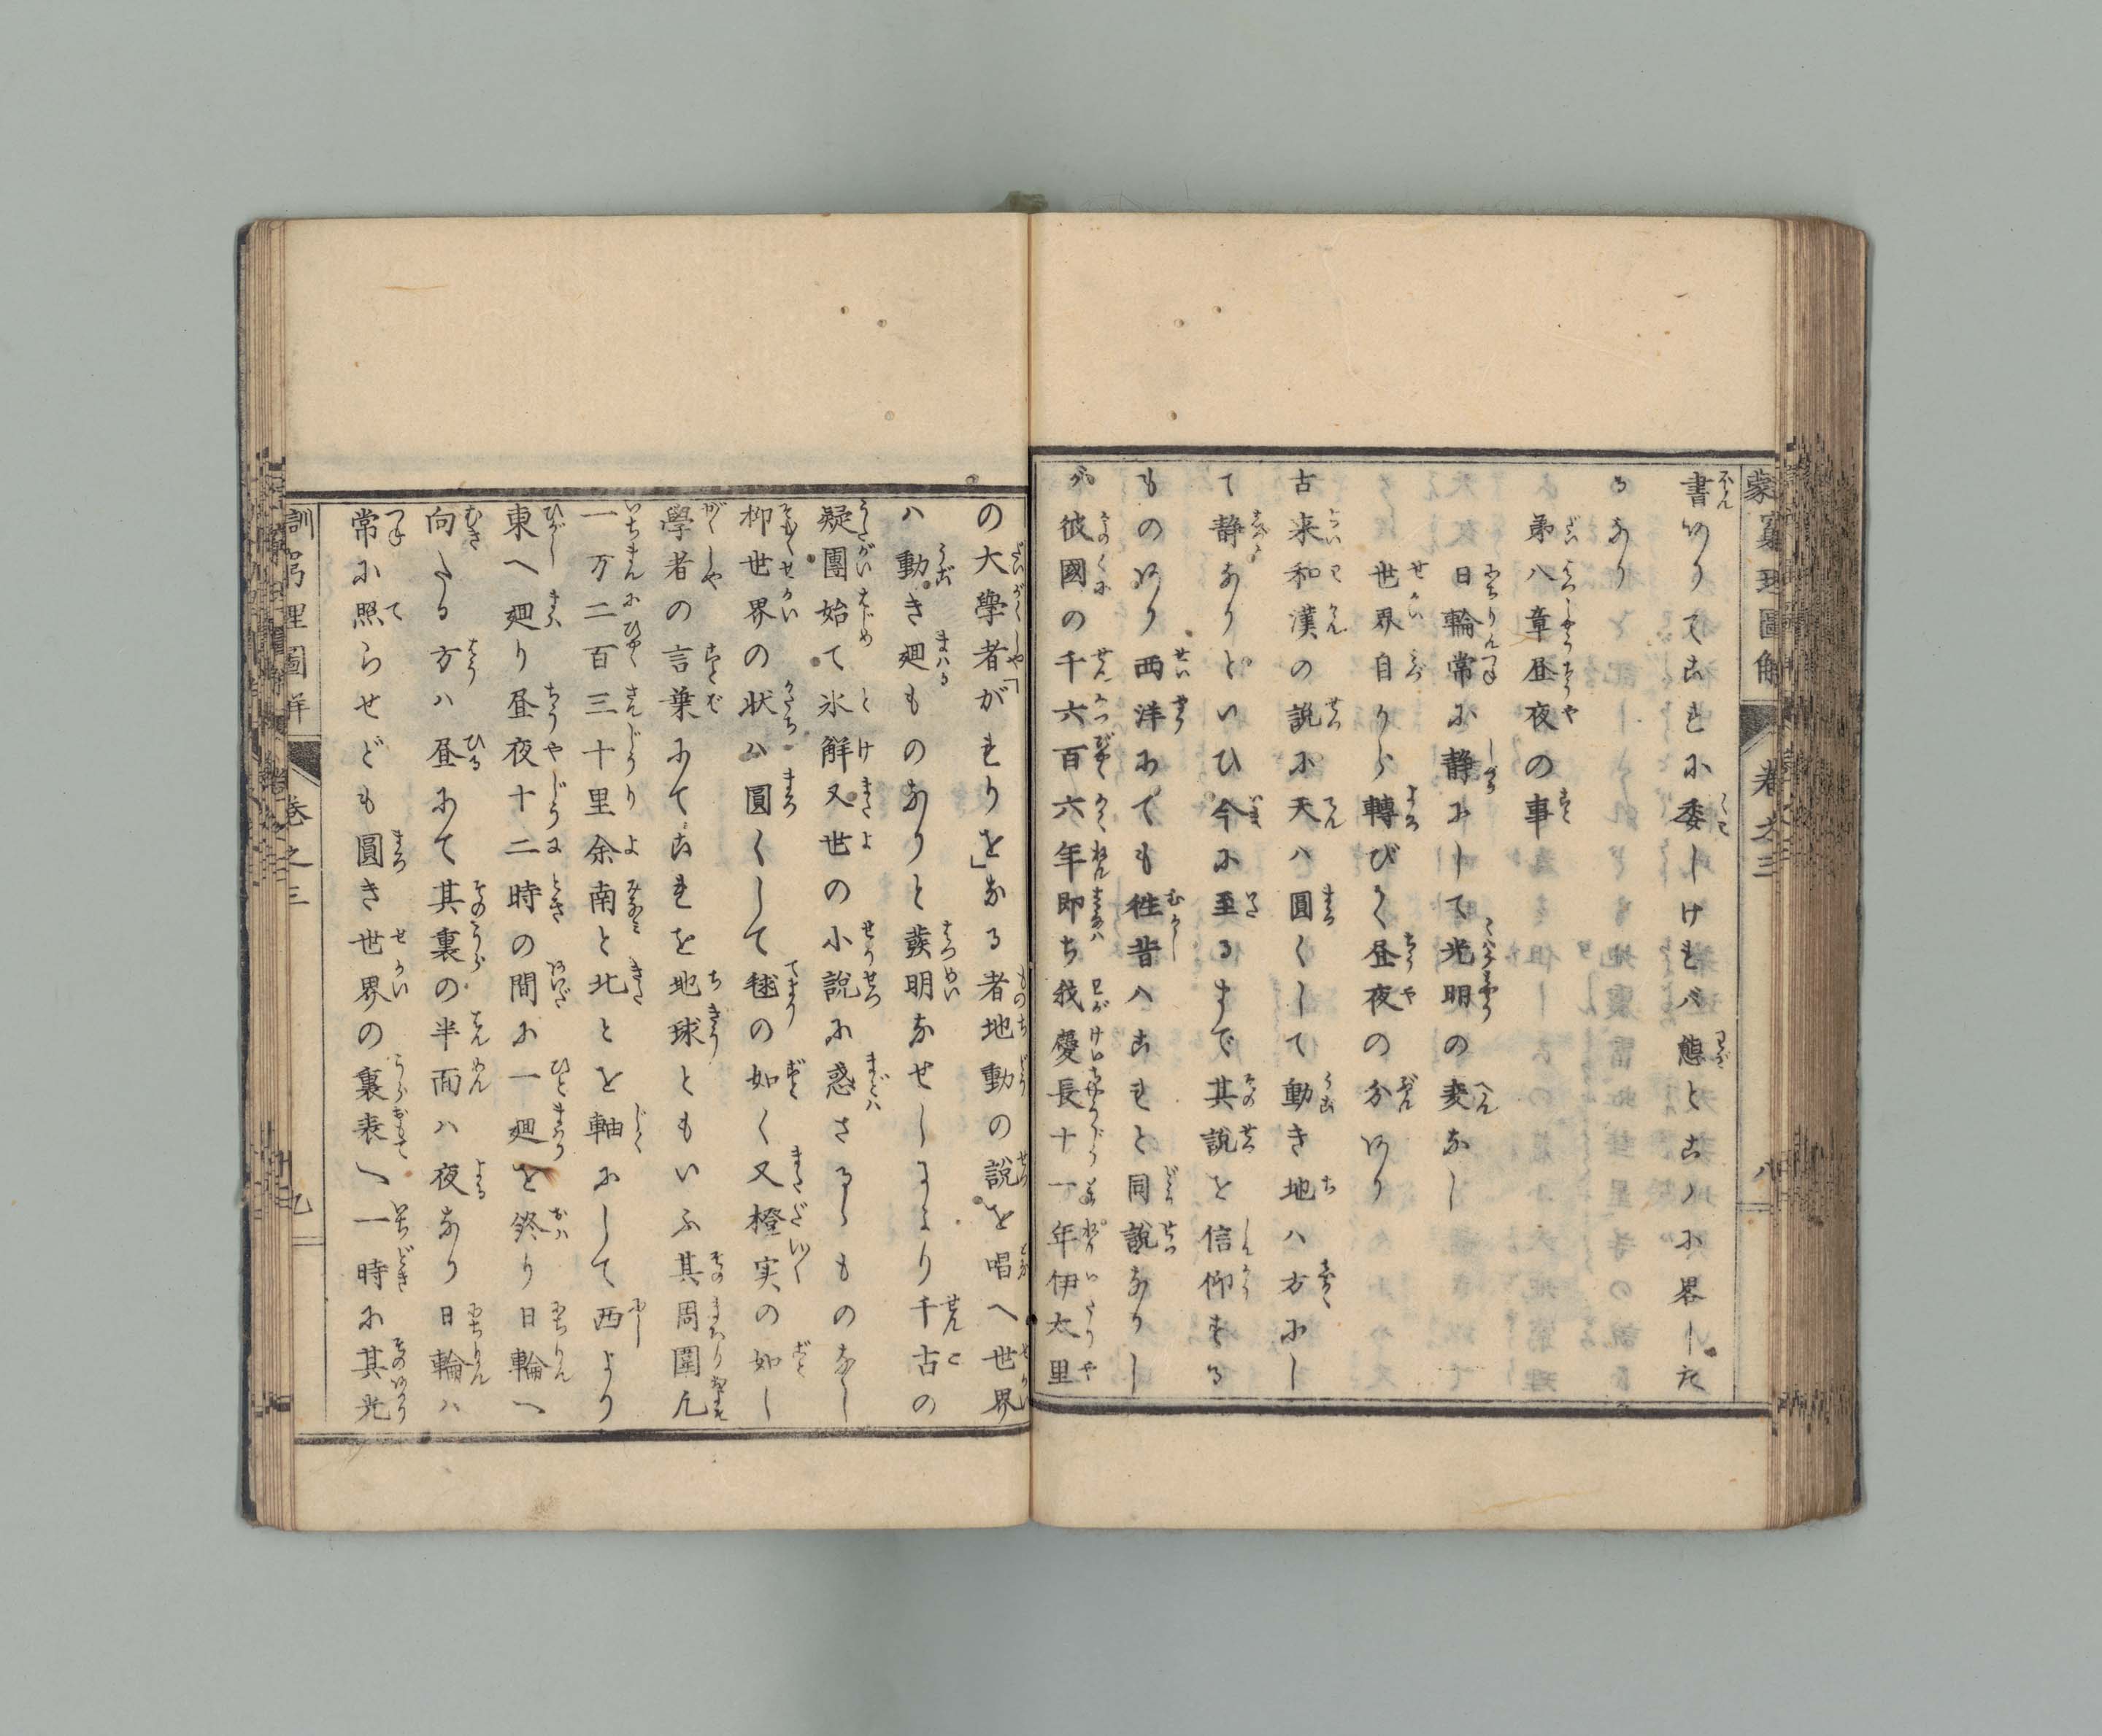 書ありてこれに委しけれバ態とこゝに畧した
るなり
第八章昼夜の事
日輪常に静にして光明の変なし
世界自から轉びて昼夜の分あり
古来和漢の説に天ハ圓くして動き地ハ方にし
て静なりといひ今に至るまで其説を信仰する
ものあり西洋にても徃昔ハこれと同説なりし
が彼國の千六百六年即ち我慶長十一年伊太里
の大學者「がれりを」なる者地動の説を唱へ世界
ハ動き廻ものなりと發明なせしより千古の
疑團始て氷解又世の小説に惑さるゝものなし
抑世界の状ハ圓くして毬の如く又橙実の如し
學者の言葉にてこれを地球ともいふ其周圍凡
一万二百三十里余南と北とを軸にして西より
東へ廻り昼夜十二時の間に一廻を終り日輪へ
向たる方ハ昼にて其裏の半面ハ夜なり日輪ハ
常に照らせども圓き世界の裏表へ一時に其光
卷之三
八
卷之三
九